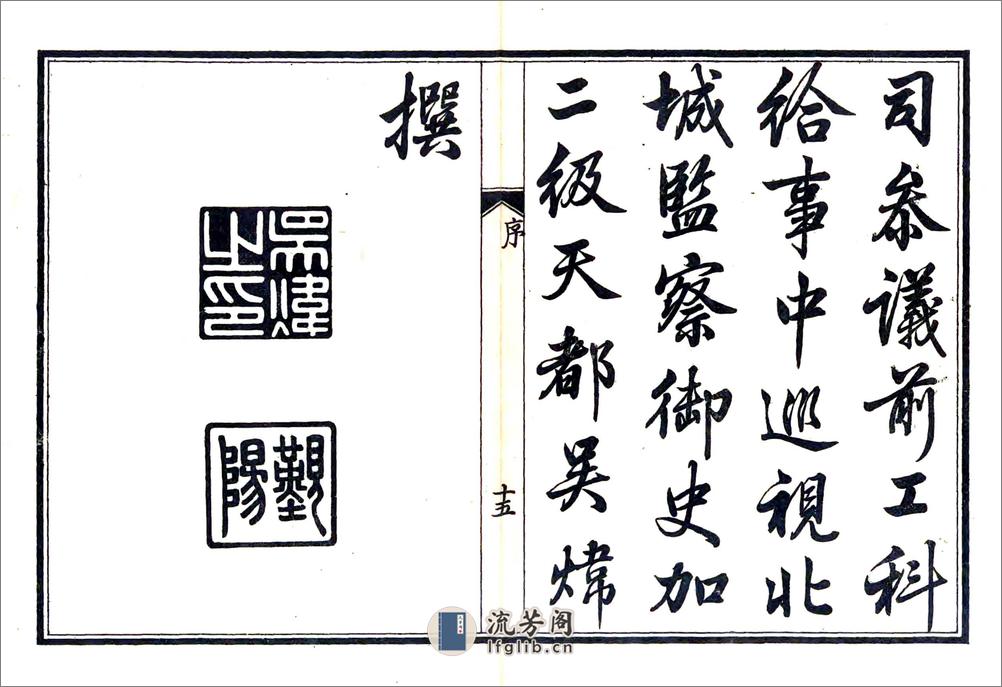 司叅議前工科
給事中巡視北
城監察御史加
二級天都吳煒
序
十五
撰
吳煒之印
覲陽
流芳阁
lfglib.cn